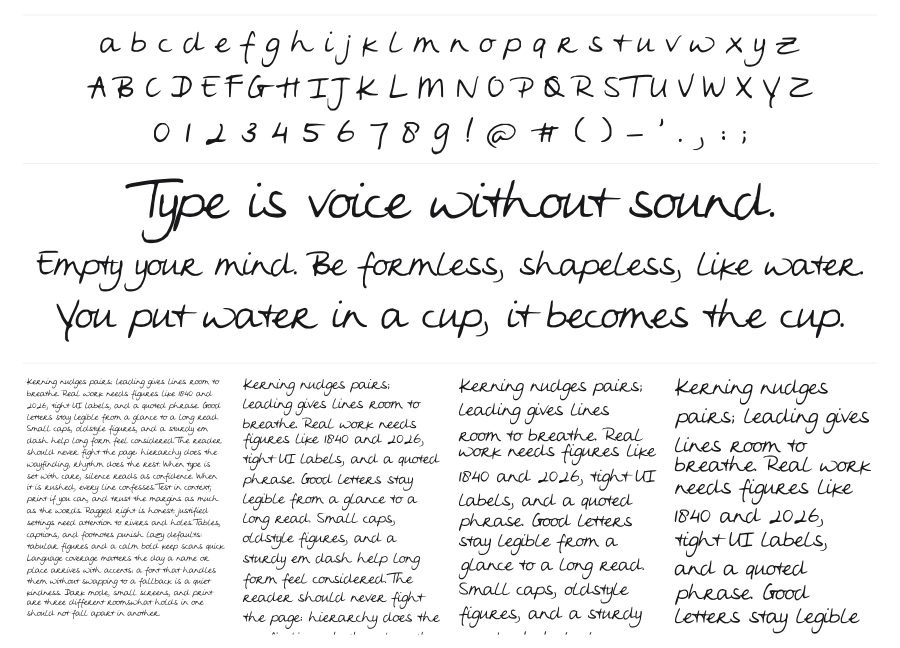 a b c d e f g h i j k l m n o p q r s t u v w x y z
A B C D E F G H I J K L M N O P Q R S T U V W X Y Z
0 1 2 3 4 5 6 7 8 9 ! @ # ( ) - ' . , : ;
Type is voice without sound.
Empty your mind. Be formless, shapeless, like water.
You put water in a cup, it becomes the cup.
Kerning nudges pairs; leading gives lines room to
breathe. Real work needs figures like 1840 and
2026, tight UI labels, and a quoted phrase. Good
letters stay legible from a glance to a long read.
Small caps, oldstyle figures, and a sturdy em
dash help long form feel considered.The reader
should never fight the page: hierarchy does the
wayfinding, rhythm does the rest. When type is
set with care, silence reads as confidence. When
it is rushed, every line confesses.Test in context;
print if you can, and trust the margins as much
as the words. Ragged right is honest; justified
settings need attention to rivers and holes.Tables,
captions, and footnotes punish lazy defaults:
tabular figures and a calm bold keep scans quick.
Language coverage matters the day a name or
place arrives with accents; a font that handles
them without swapping to a fallback is a quiet
kindness. Dark mode, small screens, and print
are three different rooms:what holds in one
should not fall apart in another.
Kerning nudges pairs;
leading gives lines room to
breathe. Real work needs
figures like 1840 and 2026,
tight UI labels, and a quoted
phrase. Good letters stay
legible from a glance to a
long read. Small caps,
oldstyle figures, and a
sturdy em dash help long
form feel considered.The
reader should never fight
the page: hierarchy does the
Kerning nudges pairs;
leading gives lines
room to breathe. Real
work needs figures like
1840 and 2026, tight UI
labels, and a quoted
phrase. Good letters
stay legible from a
glance to a long read.
Small caps, oldstyle
figures, and a sturdy
Kerning nudges
pairs; leading gives
lines room to
breathe. Real work
needs figures like
1840 and 2026,
tight UI labels,
and a quoted
phrase. Good
letters stay legible